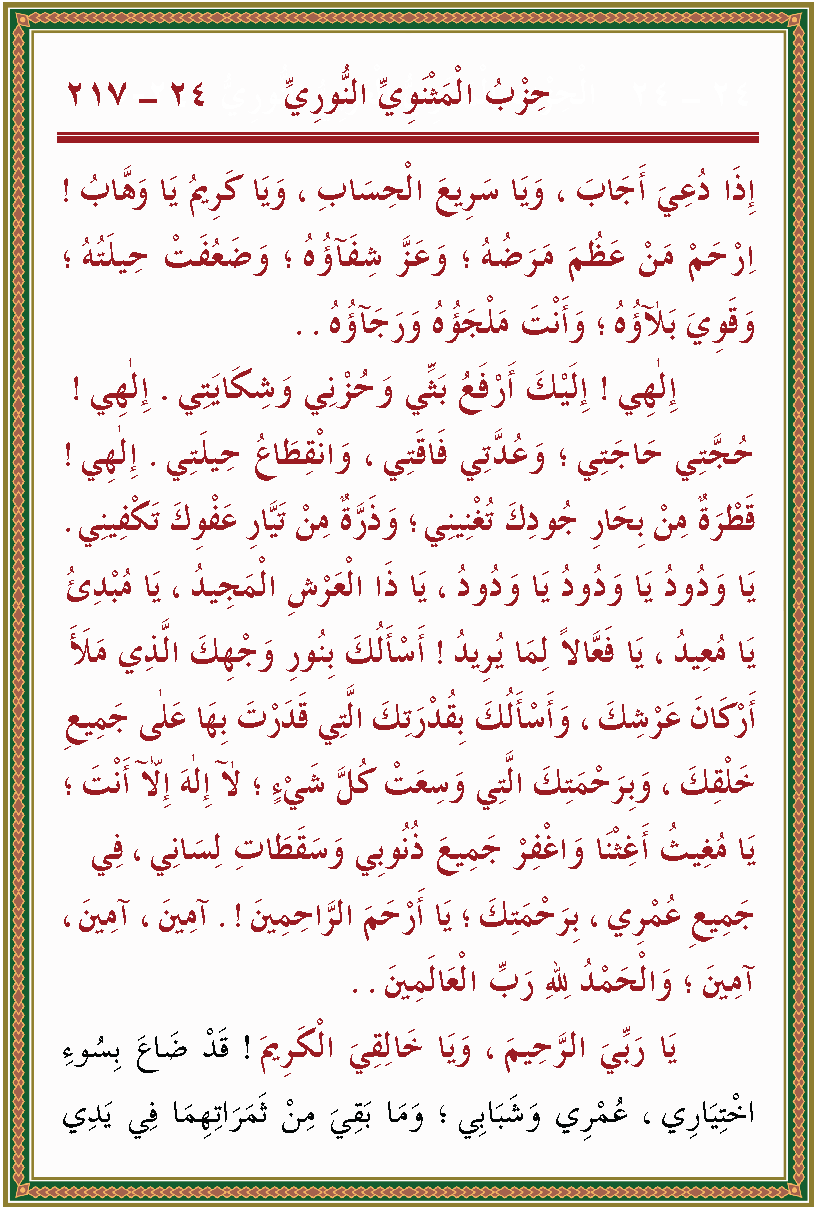 حِزْبُ الْمَثْنَوِيِّ النُّورِيِّ ٢٤ – ٢١٧
إِذَا دُعِيَ أَجَابَ ، وَيَا سَرِيعَ الْحِسَابِ ، وَيَا كَرِيمُ يَا وَهَّابُ !
اِرْحَمْ مَنْ عَظُمَ مَرَضُهُ ؛ وَعَزَّ شِفَآؤُهُ ؛ وَضَعُفَتْ حِيلَتُهُ ؛
وَقَوِيَ بَلَآؤُهُ ؛ وَأَنْتَ مَلْجَؤُهُ وَرَجَآؤُهُ . .
إِلٰهِي ! إِلَيْكَ أَرْفَعُ بَثِّي وَحُزْنِي وَشِكَايَتِي . إِلٰهِي !
حُجَّتِي حَاجَتِي ؛ وَعُدَّتِي فَاقَتِي ، وَانْقِطَاعُ حِيلَتِي . إِلٰهِي !
قَطْرَةٌ مِنْ بِحَارِ جُودِكَ تُغْنِينِي ؛ وَذَرَّةٌ مِنْ تَيَّارِ عَفْوِكَ تَكْفِينِي .
يَا وَدُودُ يَا وَدُودُ يَا وَدُودُ ، يَا ذَا الْعَرْشِ الْمَجِيدُ ، يَا مُبْدِئُ
يَا مُعِيدُ ، يَا فَعَّالاً لِمَا يُرِيدُ ! أَسْأَلُكَ بِنُورِ وَجْهِكَ الَّذِي مَلَأَ
أَرْكَانَ عَرْشِكَ ، وَأَسْأَلُكَ بِقُدْرَتِكَ الَّتِي قَدَرْتَ بِهَا عَلٰى جَمِيعِ
خَلْقِكَ ، وَبِرَحْمَتِكَ الَّتِي وَسِعَتْ كُلَّ شَيْءٍ ؛ لَآ إِلٰهَ إِلَّآ أَنْتَ ؛
يَا مُغِيثُ أَغِثْنَا وَاغْفِرْ جَمِيعَ ذُنُوبِي وَسَقَطَاتِ لِسَانِي ، فِي
جَمِيعِ عُمْرِي ، بِرَحْمَتِكَ ؛ يَا أَرْحَمَ الرَّاحِمِينَ ! . آمِينَ ، آمِينَ ،
آمِينَ ؛ وَالْحَمْدُ لِلّٰهِ رَبِّ الْعَالَمِينَ . .
يَا رَبِّيَ الرَّحِيمَ ، وَيَا خَالِقِيَ الْكَرِيمَ ! قَدْ ضَاعَ بِسُوءِ
اخْتِيَارِي ، عُمْرِي وَشَبَابِي ؛ وَمَا بَقِيَ مِنْ ثَمَرَاتِهِمَا فِي يَدِي